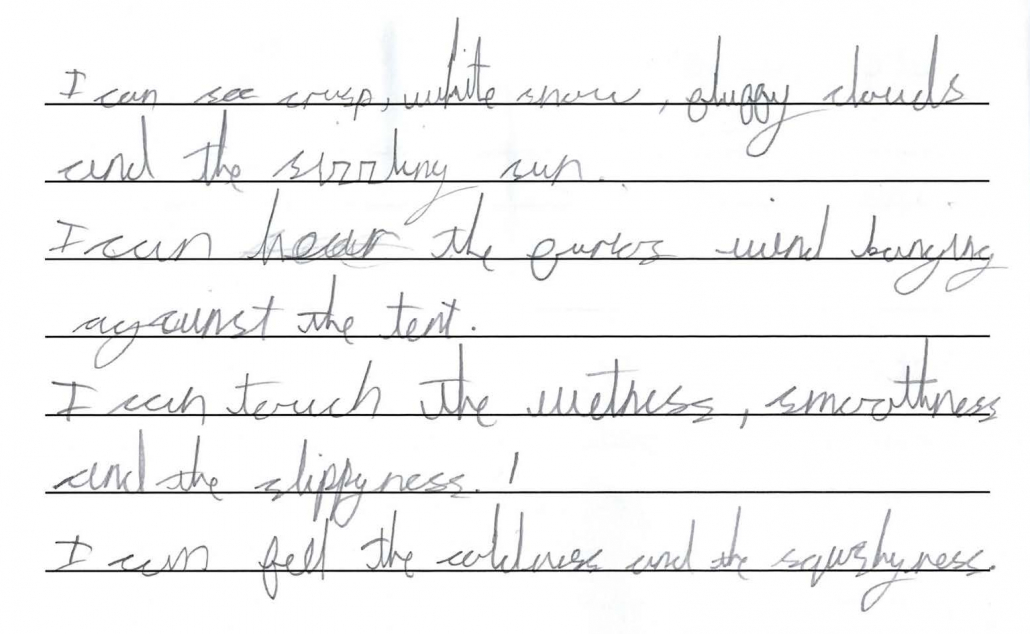 I can see crisp, white snow, fluffy clouds
and the sizzling sun.
I can hear the wind banging
against the tent.
I can touch the wetness, smoothness
and the slippyness. /
I can fell the coldness and the squishyness.